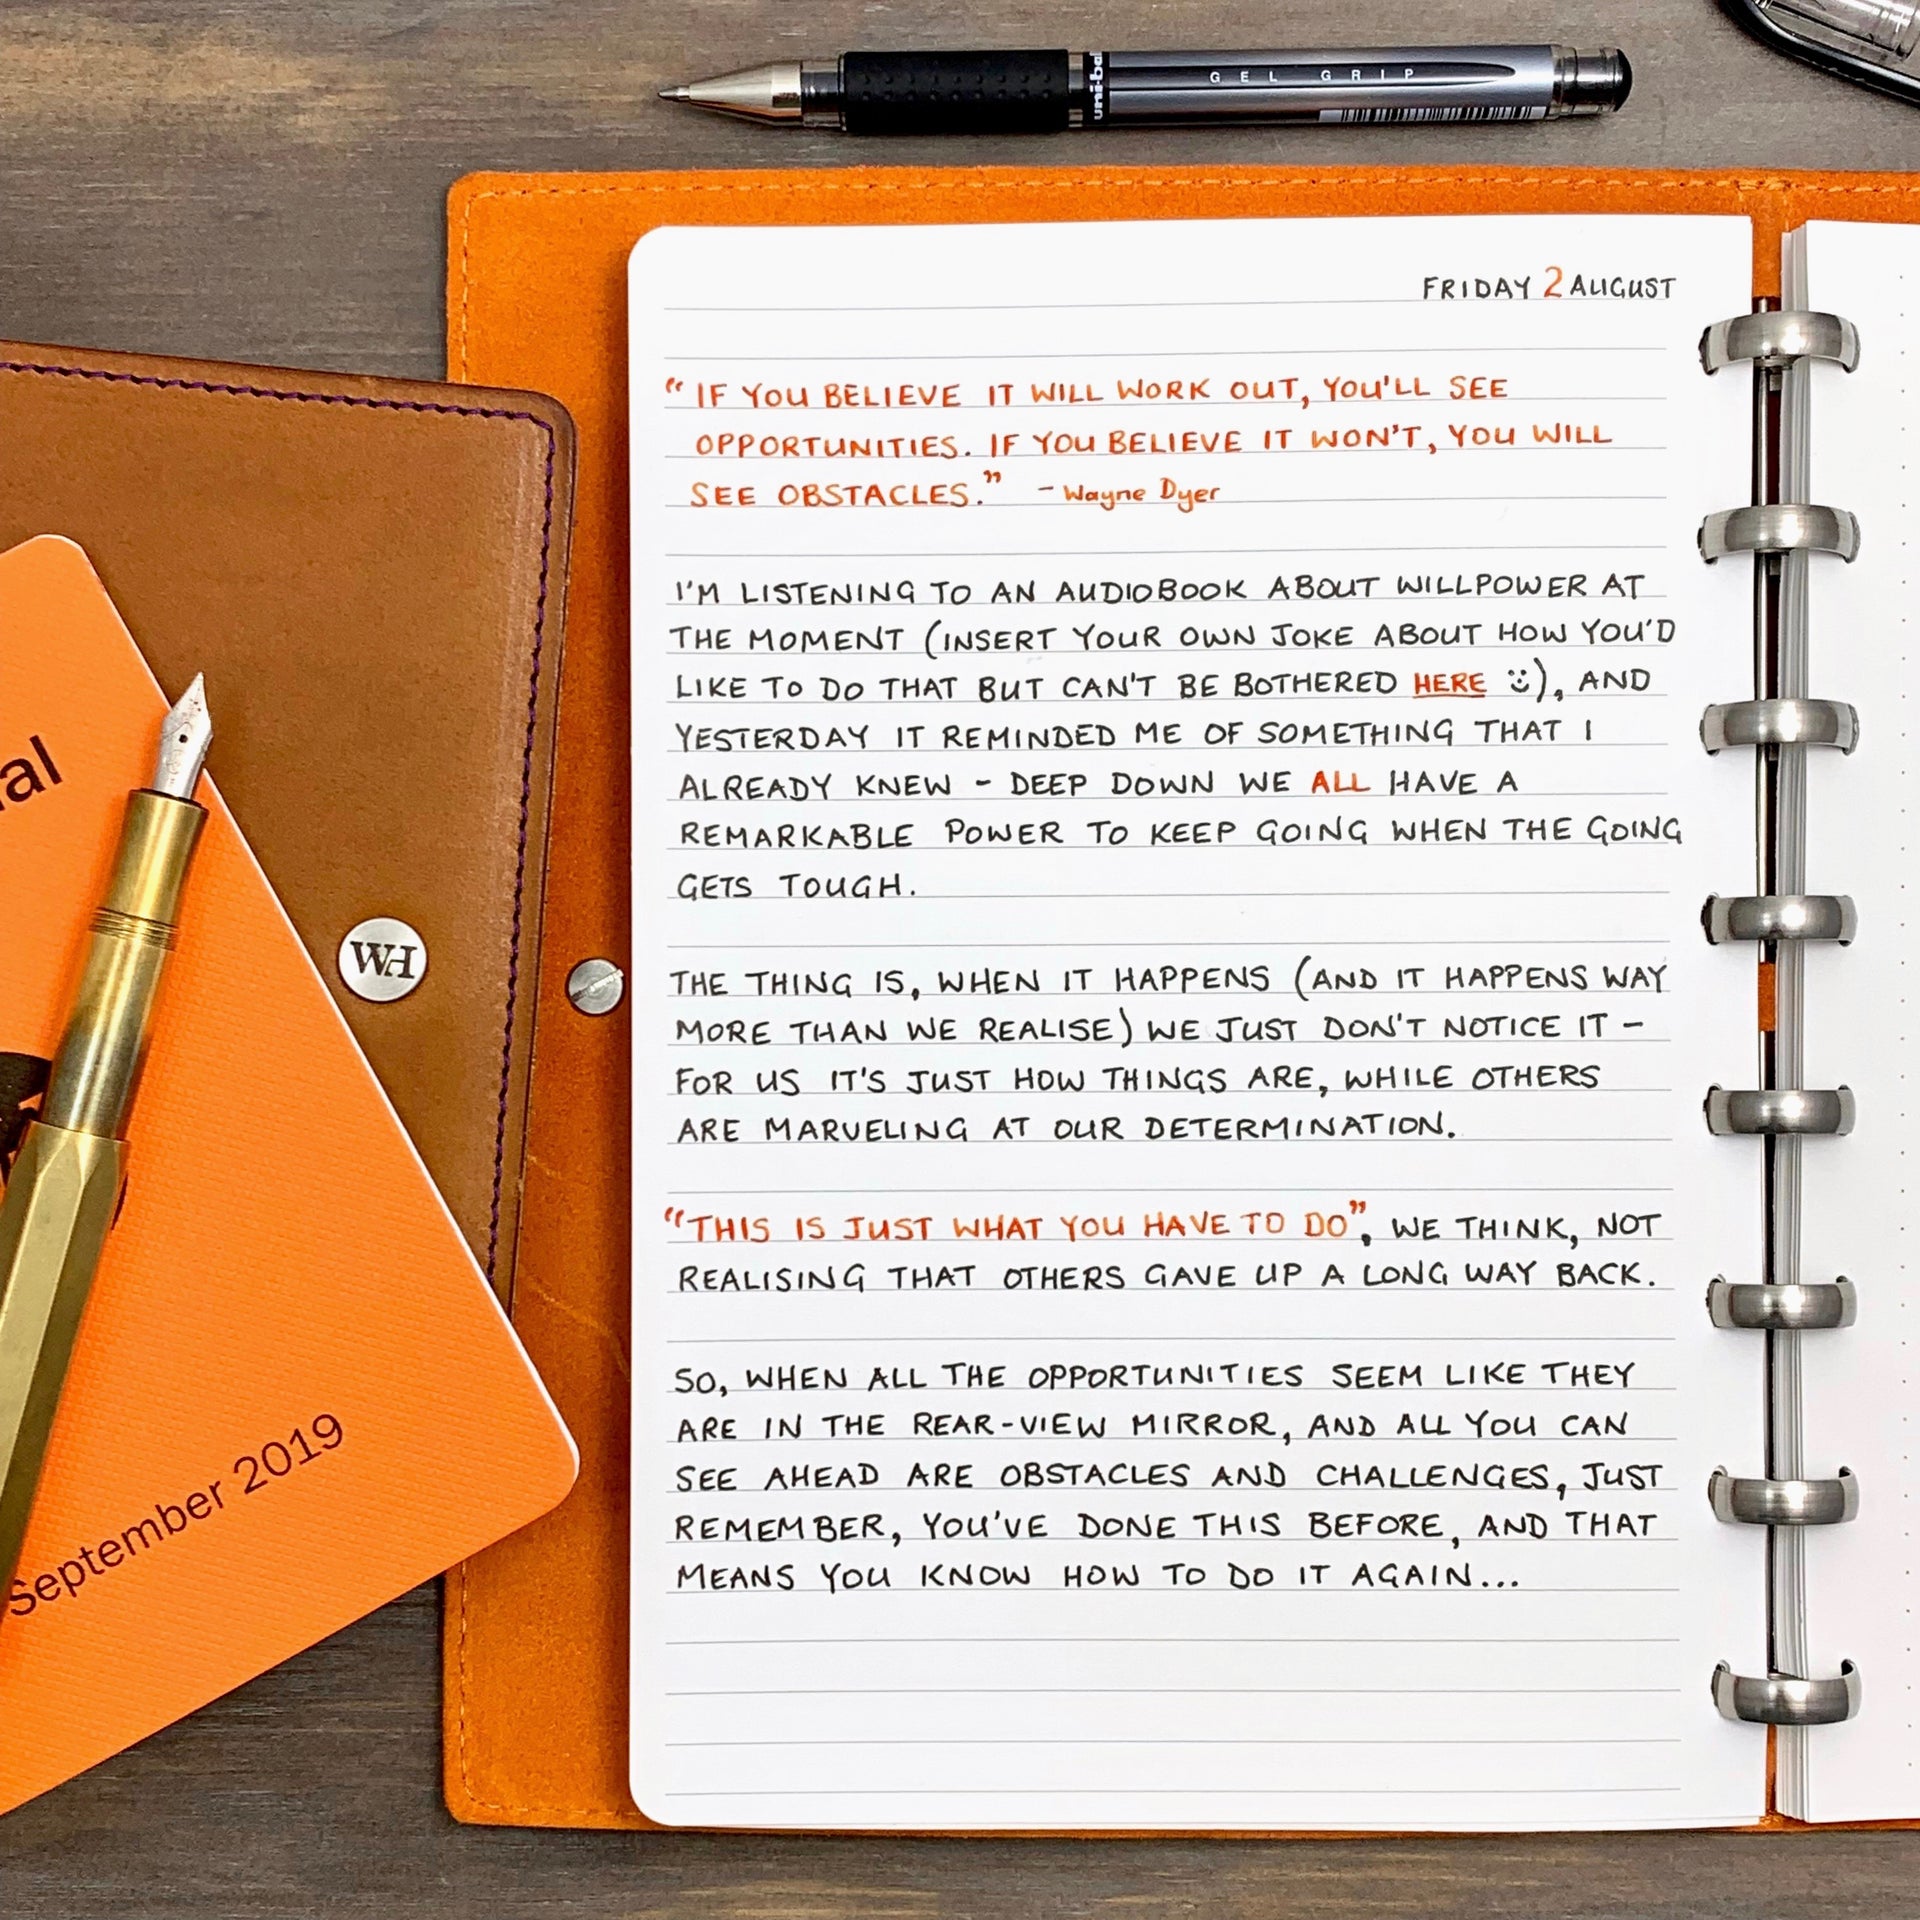 uni-ba
GEL GRIP
FRIDAY 2 AUGUST
"IF YOU BELIEVE IT WILL WORK OUT, YOU'LL SEE
OPPORTUNITIES. IF YOU BELIEVE IT WON'T, YOU WILL
SEE OBSTACLES." - Wayne Dyer
I'M LISTENING TO AN AUDIOBOOK ABOUT WILLPOWER AT
THE MOMENT (INSERT YOUR OWN JOKE ABOUT HOW YOU'D
LIKE TO DO THAT BUT CAN'T BE BOTHERED HERE ☺), AND
YESTERDAY IT REMINDED ME OF SOMETHING THAT I
ALREADY KNEW - DEEP DOWN WE ALL HAVE A
REMARKABLE POWER TO KEEP GOING WHEN THE GOING
GETS TOUGH.
THE THING IS, WHEN IT HAPPENS (AND IT HAPPENS WAY
MORE THAN WE REALISE) WE JUST DON'T NOTICE IT -
FOR US IT'S JUST HOW THINGS ARE, WHILE OTHERS
ARE MARVELING AT OUR DETERMINATION.
"THIS IS JUST WHAT YOU HAVE TO DO", WE THINK, NOT
REALISING THAT OTHERS GAVE UP A LONG WAY BACK.
SO, WHEN ALL THE OPPORTUNITIES SEEM LIKE THEY
ARE IN THE REAR-VIEW MIRROR, AND ALL YOU CAN
SEE AHEAD ARE OBSTACLES AND CHALLENGES, JUST
REMEMBER, YOU'VE DONE THIS BEFORE, AND THAT
MEANS YOU KNOW HOW TO DO IT AGAIN...
al
WH
September 2019